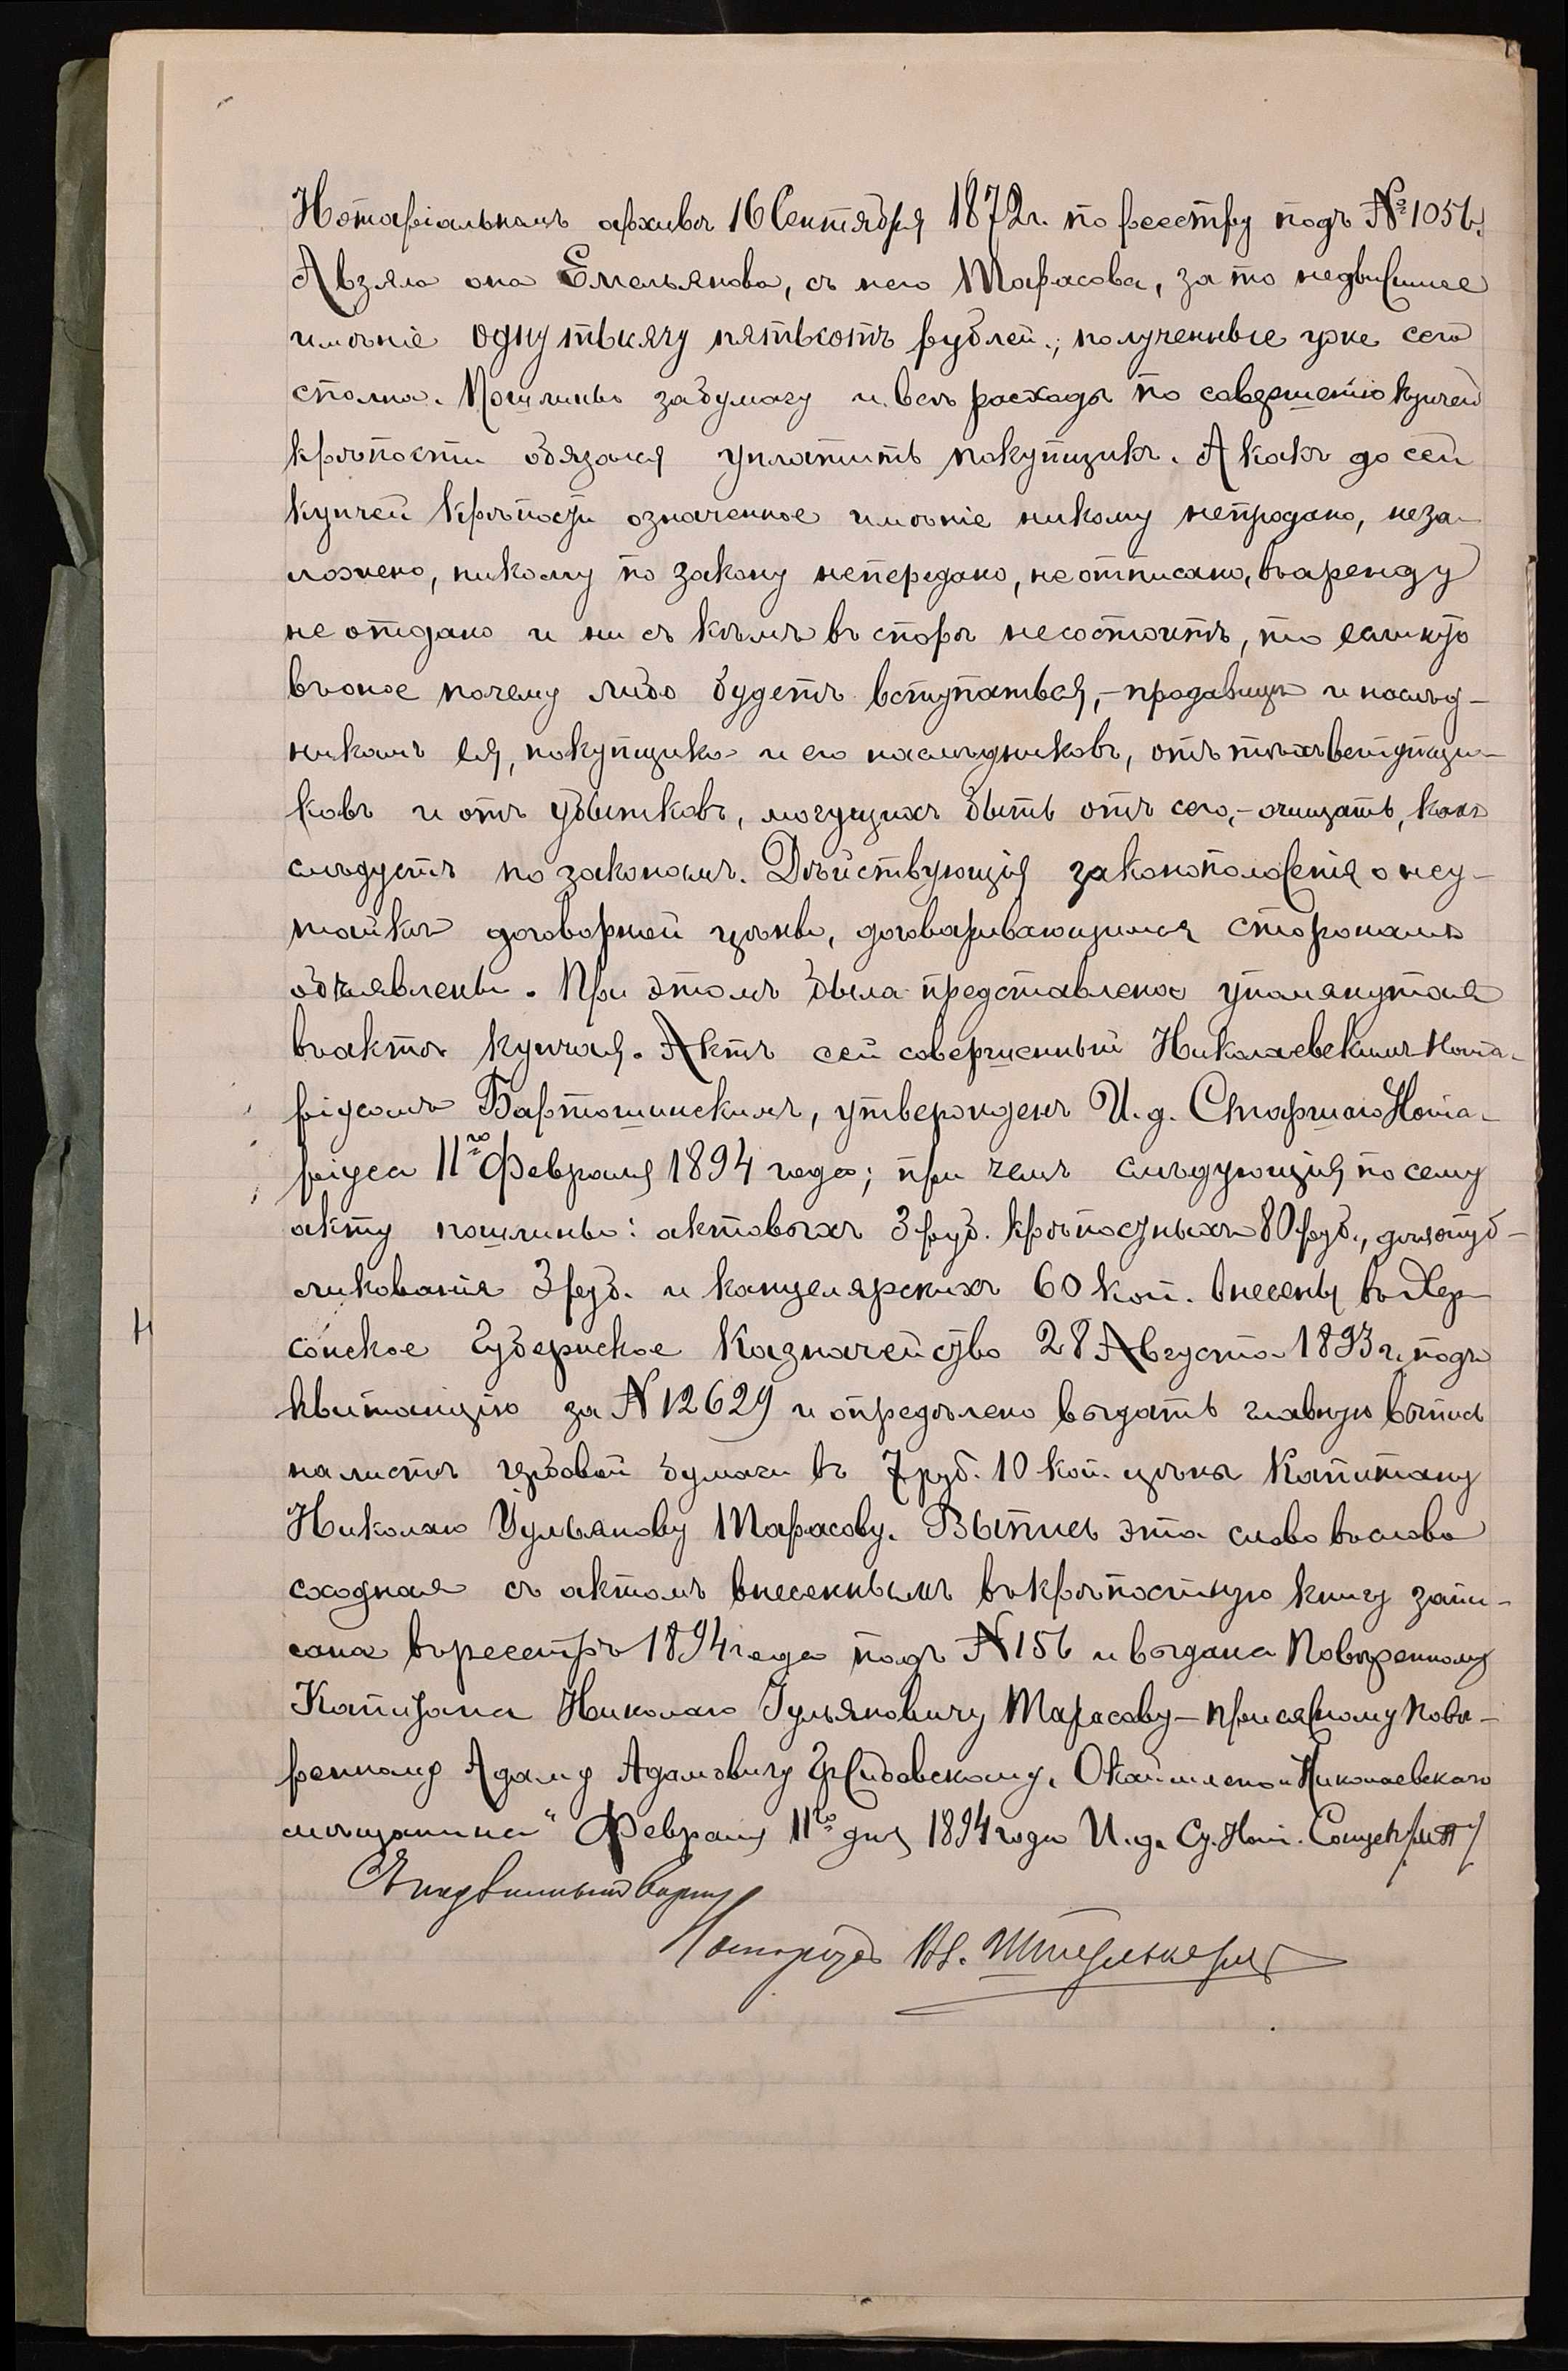 Нотаріальномъ архивѣ 16 Сентября 1872 г. по реестру подъ № 1056.
А взяла она Емельянова, съ него Тарасова, за то недвижимое
имѣніе одну тысячу пятьсотъ рублей, полученные уже сего
сполна. Пошлины за бумагу и всѣ расходы по совершенію купчей
крѣпости обязался уплатить покупщикъ. А какъ до сей
купчей крѣпости означенное имѣніе никому непродано, неза-
ложено, никому по закону непередано, не отписано, въ аренду
не отдано и ни съ кѣмъ въ спорѣ несостоитъ, то если кто
въ оное почему либо будетъ вступаться, - продавицѣ и наслѣд-
никамъ ея, покупщика и его наслѣдниковъ, отъ тѣхъ вступщи-
ковъ и отъ убытковъ, могущихъ быть отъ сего, - очищать, какъ
слѣдуетъ по законамъ. Дѣйствующія законоположенія о неу-
тайкѣ договорной цѣны, договаривающимся сторонамъ
объявлены. При этомъ была представлена упомянутая
въ актѣ купчая. Актъ сей совершенный Николаевскимъ Нота-
ріусомъ Бартошинскимъ, утвержденъ И. д. Старшаго Нота-
ріуса 11го Февраля 1894 года; при чемъ слѣдующія по сему
акту пошлины: актовыхъ 3 руб. крѣпостныхъ 80 руб., для опуб-
ликованія 3 руб. и канцелярскихъ 60 коп. внесены въ Хер-
сонское Губернское Казначейство 28 Августа 1893 г. подъ
квитанцію за N 12629 и опредѣлено выдать главную выпись
на листѣ гербовой бумаги въ 7 руб. 10 коп. цѣны Капитану
Николаю Ульянову Тарасову. Выпись эта слово въ слово
сходная съ актомъ внесеннымъ въ крѣпостную книгу запи-
сана въ реестръ 1894 года подъ N 156 и выдана Повѣренному
Капитана Николаю Ульяновичу Тарасову - Присяжному Повѣ-
ренному Адаму Адамовичу Гржибовскому. Окаймлено „Николаевскаго
мѣщанина“ Февраля 11го дня 1894 года И. д. Ст. Нот.
Съ подлиннымъ вѣрно
Нотаріусъ Вл.